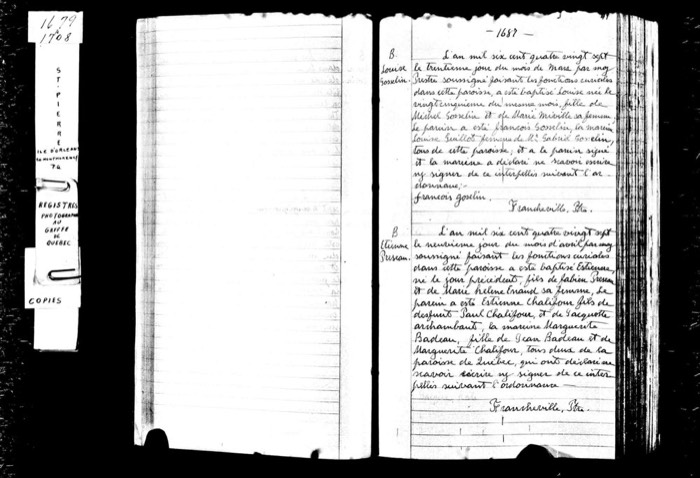 1679
à
1708
ST-PIERRE
ILE D'ORLEANS
CO MONTMORENCY
REGISTRES
PHOTOGRAPHIES
AU
GREFFE
DE
QUEBEC
COPIES
- 1687 -
B.
Louise
Gosselin.
L'an mil six cent quatre vingt sept
le trentieme jour du mois de Mars par moy
Prestre soussigné faisant les fonctions curiales
dans cette paroisse, a este baptisé Louise née le
vingt cinquieme du mesme mois, fille de
Michel Gosselin et de Marie Miville sa femme,
le parein a esté francois Gosselin, la mareine
Louise Guillot femme de Mr Gabriel Gosselin,
tous de cette paroisse, et a le parein signé
et la mareine a déclaré ne scavoir escrire
ny signer de ce interpellés suivant l'or-
donnance,-
francois goselin.
Francheville, Ptre.
B
Etienne
L'an mil six cent quatre vingt sept
le neuvieme jour du mois d'avril par moy
soussigné faisant les fonctions curiales
dans cette paroisse a este baptisé Estienne,
né le jour précédent, fils de fabien
et de Marie helene sa femme, Le
parein a esté Estienne Chalifour fils de
deffunt Paul Chalifour, et de Jacquette
archambaut, la mareine Marguerite
Badeau, fille de Jean Badeau et de
Marguerite Chalifour, tous deux de la
paroisse de Quebec, qui ont déclaré ne
scavoir escrire ny signer de ce inter
pellés suivant l'ordonnance —
Francheville, Ptre.